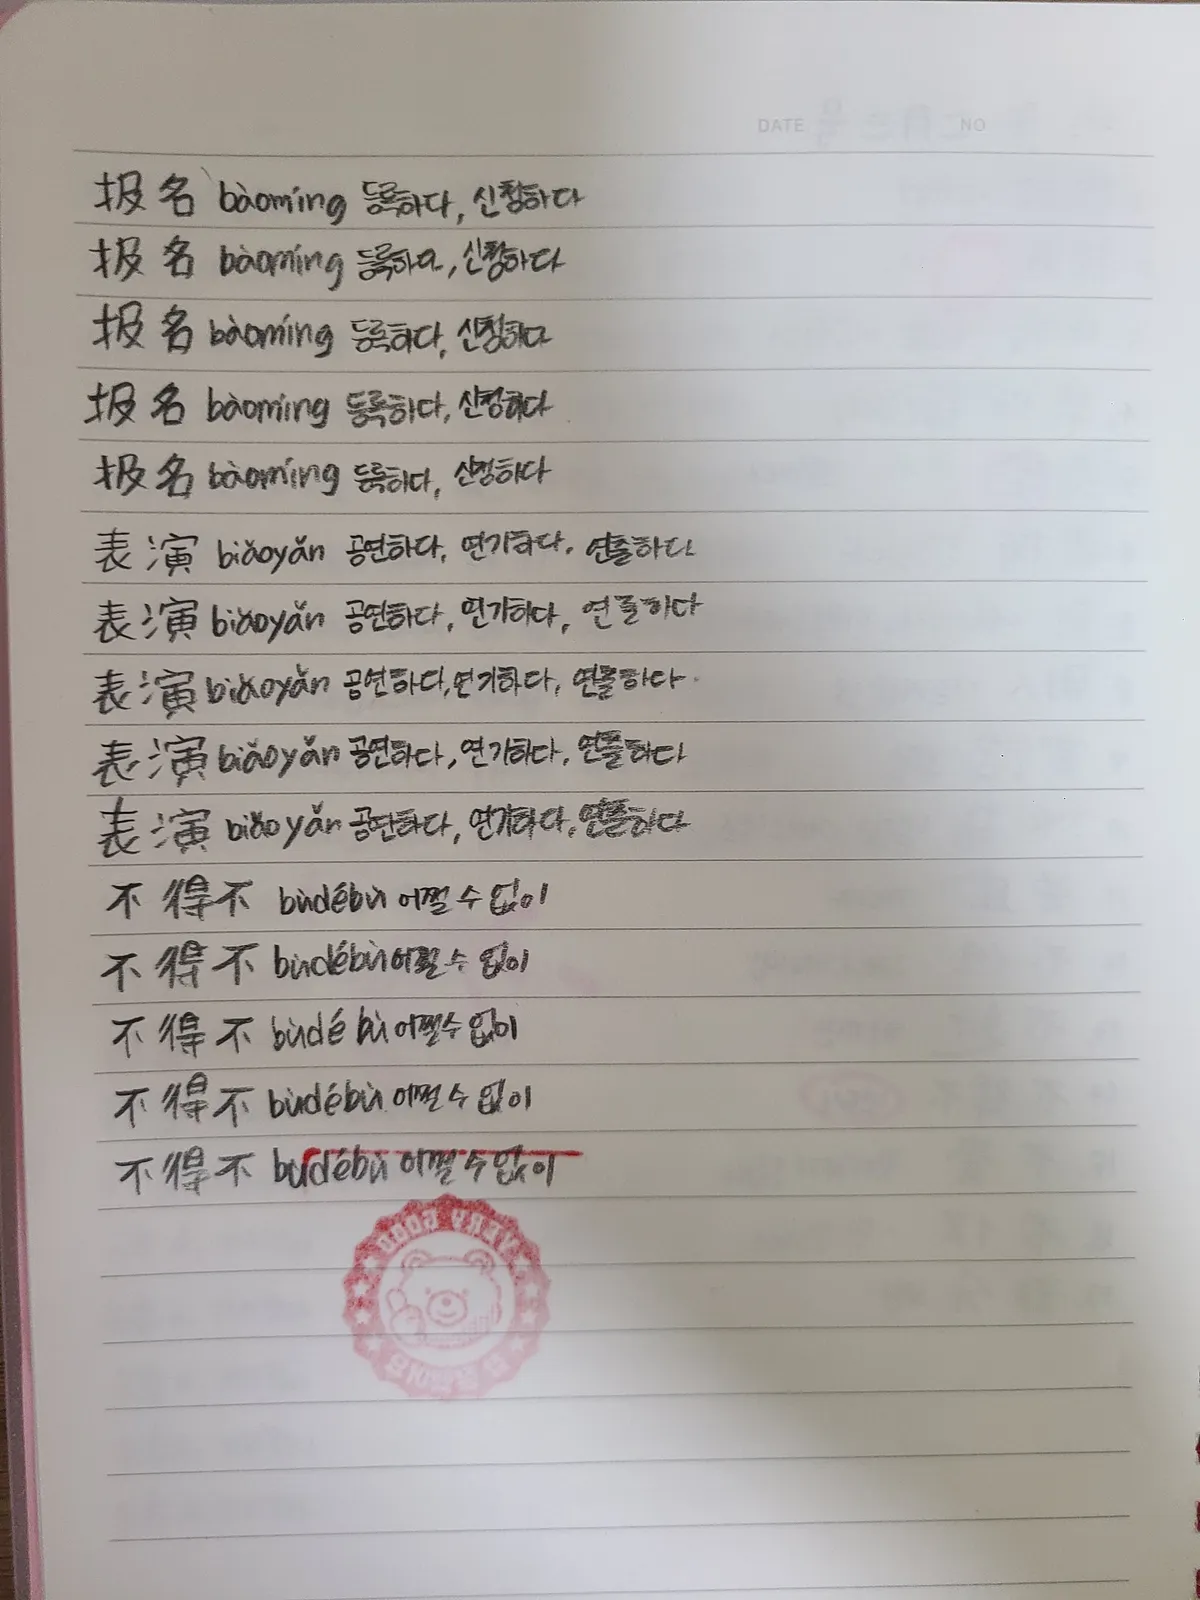 DATE NO
报名 bàomíng 등록하다, 신청하다
报名 bàomíng 등록하다, 신청하다
报名 bàomíng 등록하다, 신청하다
报名 bàomíng 등록하다, 신청하다
报名 bàomíng 등록하다, 신청하다
表演 biǎoyǎn 공연하다, 연기하다, 연출하다
表演 biǎoyǎn 공연하다, 연기하다, 연출하다
表演 biǎoyǎn 공연하다, 연기하다, 연출하다
表演 biǎoyǎn 공연하다, 연기하다, 연출하다
表演 biǎoyǎn 공연하다, 연기하다, 연출하다
不得不 bùdébù 어쩔 수 없이
不得不 bùdébù 어쩔 수 없이
不得不 bùdé bù 어쩔 수 없이
不得不 bùdébù 어쩔 수 없이
不得不 bùdébù 어쩔 수 없이
VERY GOOD